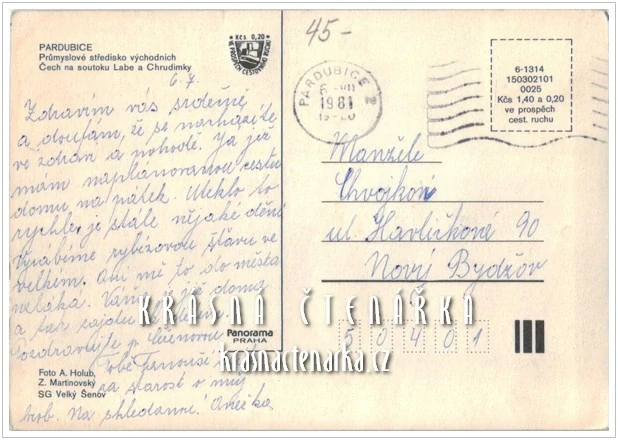 PARDUBICE
Průmyslové středisko východních
Čech na soutoku Labe a Chrudimky
Kčs 0,20
VE PROSPĚCH CESTOVNÍHO RUCHU
6.7.
Zdravím vás srdečně
a doufám, že se nacházíte
ve zdraví a pohodě. Já již
mám naplánovanou cestu
domů na pátek. Uteklo to
rychle, je stále nějaké dění
Vyrábíme rybízovou šťávu ve
velkém. Ani mě to do města
neláká. Váňa je už doma
a tak zajdu
Pozdravujte p.
Tobě Fanouši
za starost o můj
hrob. Na shledanou! Anečka
Foto A. Holub,
Z. Martinovský
SG Velký Šenov
Panorama
PRAHA
45-
PARDUBICE 2
6.-VII
1981
6-1314
150302101
0025
Kčs 1,40 a 0,20
ve prospěch
cest. ruchu
Manželé
Chvojkovi
ul. Havlíčkova 90
Nový Bydžov
50401
KRÁSNÁ ČTENÁŘKA
krasnactenarka.cz